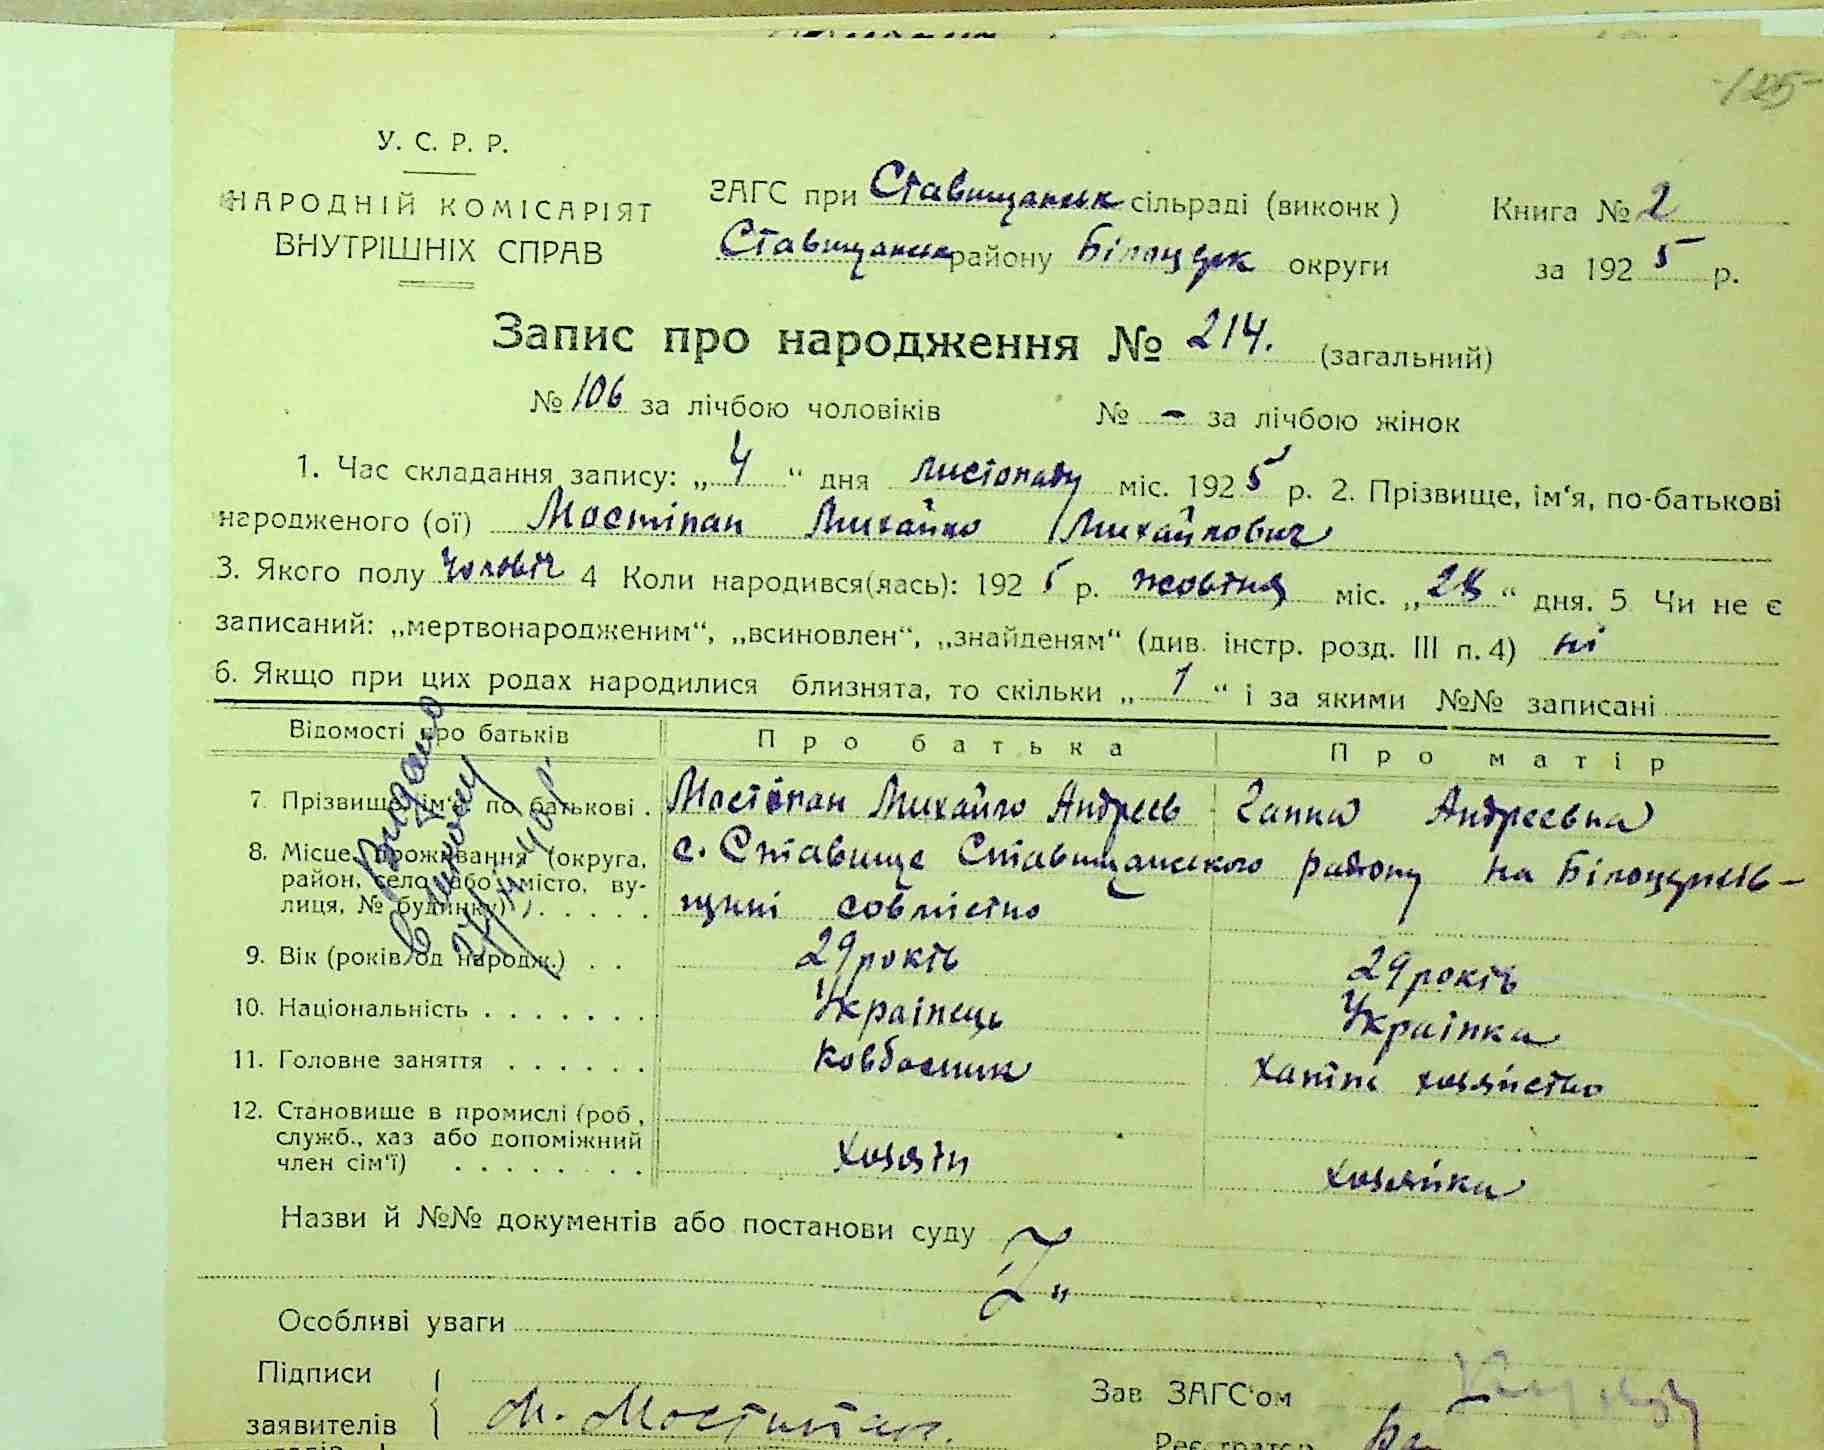 -125-
У. С. Р. Р.
НАРОДНІЙ КОМІСАРІЯТ
ВНУТРІШНІХ СПРАВ
ЗАГС при Ставищанськ сільраді (виконк)
Ставищанськ району Білоцерк округи
Книга № 2
за 1925 р.
Запис про народження № 214. (загальний)
№ 106 за лічбою чоловіків № - за лічбою жінок
1. Час складання запису: „4“ дня листопаду міс. 1925 р. 2. Прізвище, ім‘я, по-батькові
народженого (ої) Мостіпан Михайло Михайлович
3. Якого полу чоловіч 4 Коли народився(лась): 1925 р. жовтня міс. „28“ дня. 5 Чи не є
записаний: „мертвонародженим“, „всиновлен“, „знайденям“ (див. інстр. розд. III п. 4) ні
6. Якщо при цих родах народилися близнята, то скільки „1“ і за якими №№ записані
Відомості про батьків Про батька Про матір
7. Прізвище, ім‘я, по батькові . Мостіпан Михайло Андреєв Ганна Андреєвна
8. Місце проживання (округа, район, село або місто, вулиця, № будинку) . . . . .
с. Ставище Ставищанського району на Білоцерків-
щині совмістно
9. Вік (років од народж.) . . 29 років 29 років
10. Національність . . . . . . . Українець Українка
11. Головне заняття . . . . . . ковбасник хатнє хозяйство
12. Становище в промислі (роб, служб., хаз або допоміжний член сім‘ї) . . . . . . . . хозяїн хозяйка
Видано
Назви й №№ документів або постанови суду
Особливі уваги
Підписи
заявителів М. Мостипан.
Зав ЗАГС‘ом